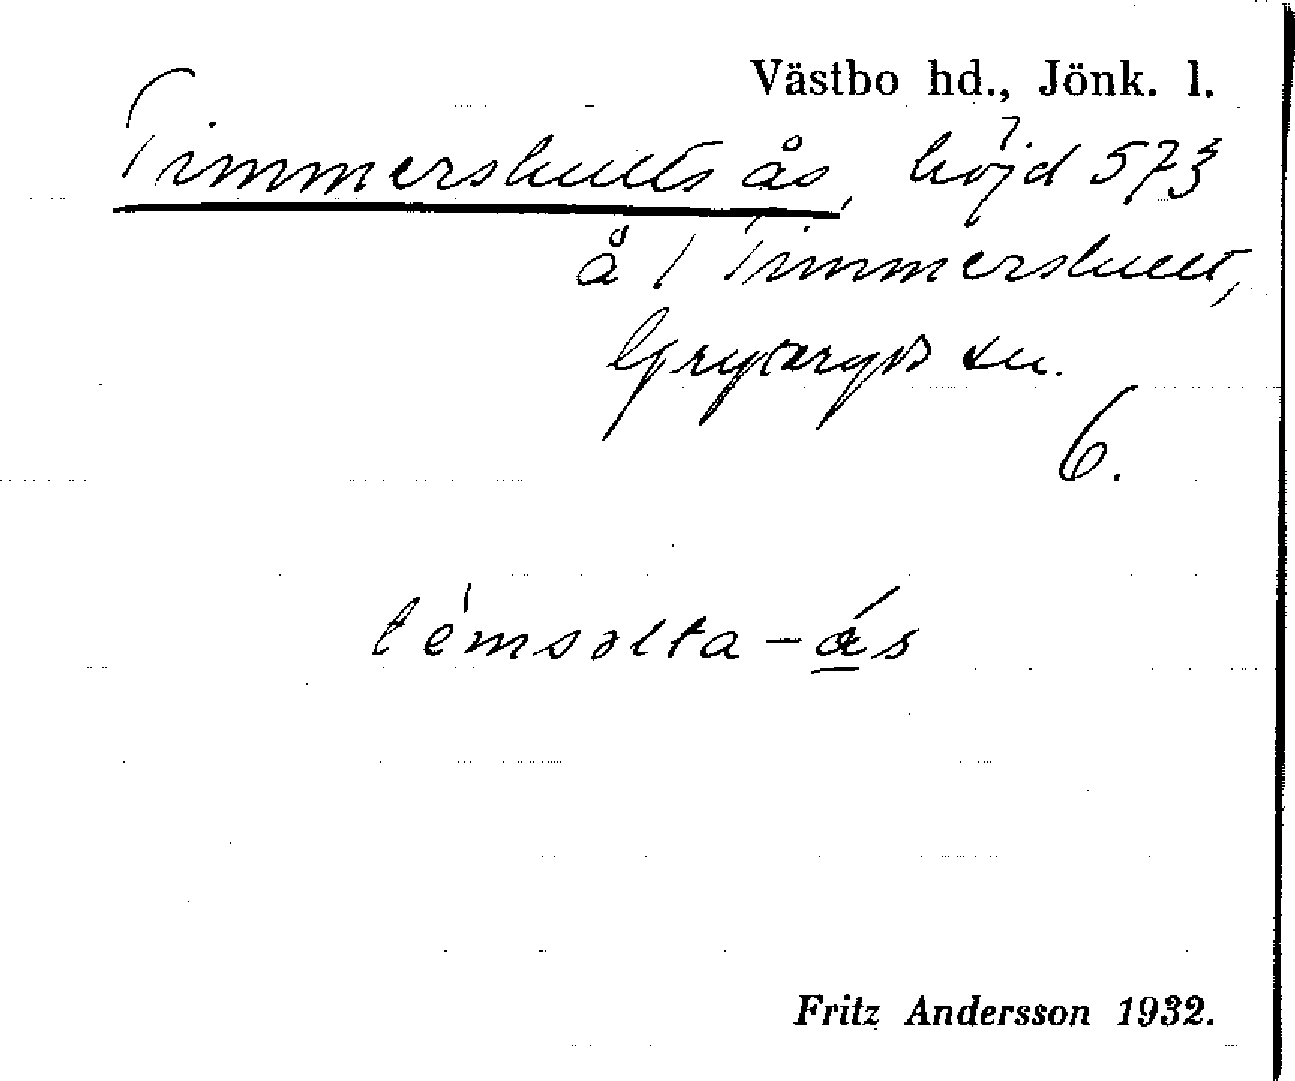 Västbo hd., Jönk. l.
Timmershults ås, höjd 573
å 1 Timmershult,
Gryteryds sn.
6.
témsəlta-ás
Fritz Andersson 1932.